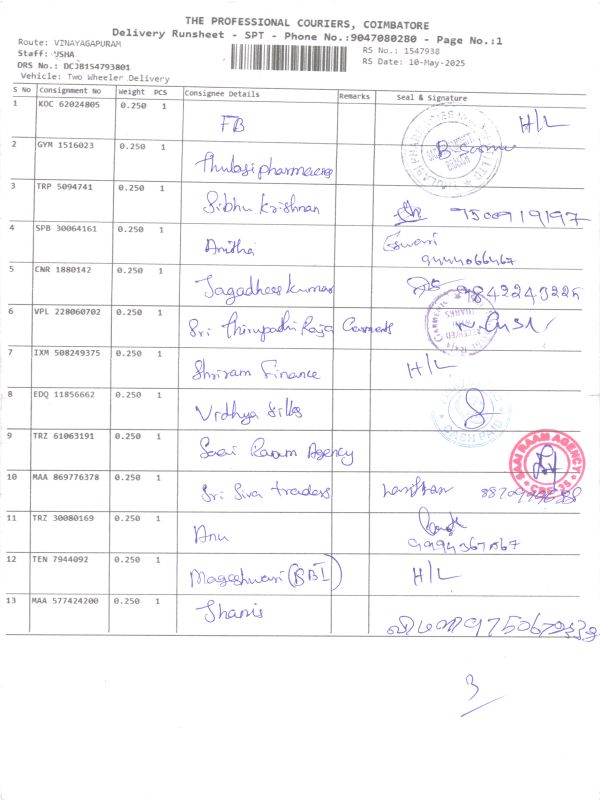 THE PROFESSIONAL COURIERS, COIMBATORE
Delivery Runsheet - SPT - Phone No.:9047080280 - Page No.:1
Route: VINAYAGAPURAM
Staff: USHA
DRS No.: DCJB154793801
Vehicle: Two Wheeler Delivery
RS No.: 1547938
RS Date: 10-May-2025
S No Consignment No Weight PCS Consignee Details Remarks Seal & Signature
1 KOC 62024805 0.250 1 FB H/L
2 GYM 1516023 0.250 1 Thulasi pharmacy
3 TRP 5094741 0.250 1 Sibhu Krishnan 9500919197
4 SPB 30064161 0.250 1 Anitha Eswari
9444066467
5 CNR 1880142 0.250 1 Jagadhees kumar
6 VPL 228060702 0.250 1 Sri Thirupathi Raja Garments
7 IXM 508249375 0.250 1 Shriram Finance H/L
8 EDQ 11856662 0.250 1 Vidhya silks
CASH PAID
9 TRZ 61063191 0.250 1 Saai Raam Agency
SAAI RAAM AGENCY
CBE-35
10 MAA 869776378 0.250 1 Sri Siva traders
11 TRZ 30080169 0.250 1 Anu
12 TEN 7944092 0.250 1 Mageshwari (BBI) H/L
13 MAA 577424200 0.250 1
3